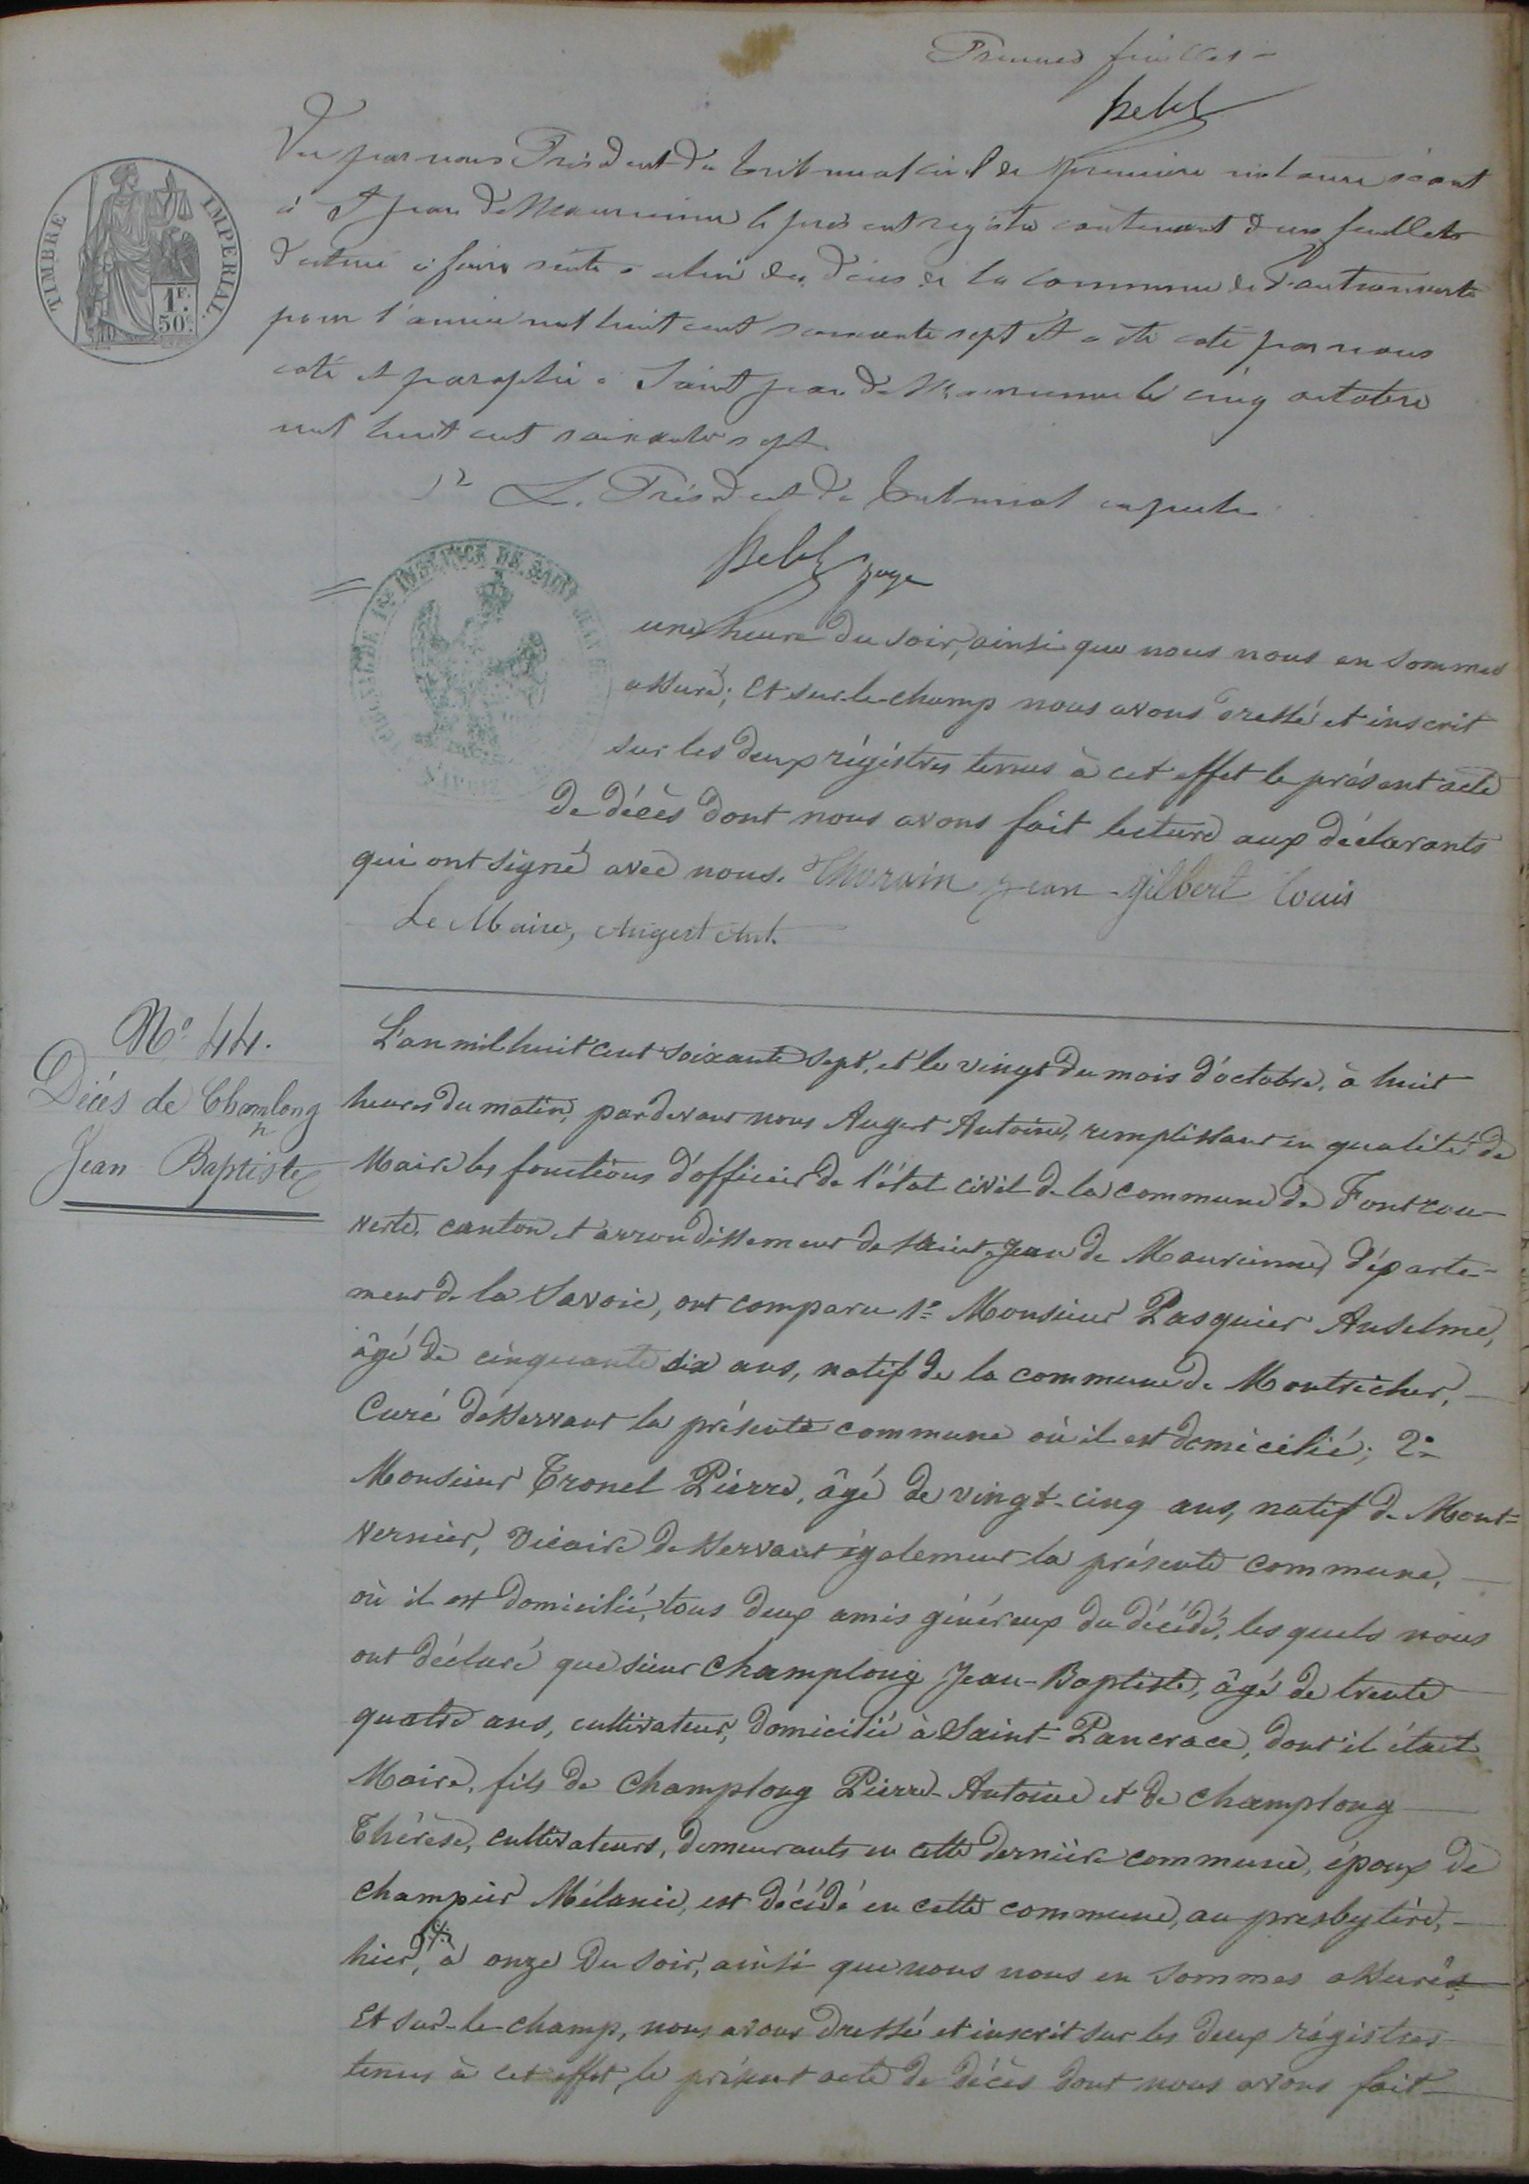 Premier feuillet
TIMBRE IMPERIAL
1F.
50c.
Vu par nous Président du tribunal civil de première instance séant
à St jean de Maurienne le présent registre contenant deux feuillets
destiné à faire suite à celui des décès de la commune de Fontcouverte
pour l'année mil huit cent soixante sept et a été coté par nous
coté et paraphé à Saint jean de Maurienne le cinq octobre
mil huit cent soixante sept
Le Président du tribunal
juge
une heure du soir, ainsi que nous nous en sommes
assuré; Et sur-le-champ nous avons dressé et inscrit
sur les deux régistres tenus à cet effet le présent acte
de décès dont nous avons fait lecture aux déclarants
qui ont signé avec nous. Thorain jean Gilbert louis
Le Maire, Augert Ant.
N° 44.
Décés de Chamlong
Jean Baptiste
L'an mil huit cent soixante sept, et le vingt du mois d'octobre, à huit
heures du matin, pardevant nous Augert Antoine, remplissant en qualité de
Maire les fonctions d'officier de l'état civil de la commune de Fontcou-
verte, canton et arrondissement de Saint-Jean de Maurienne, départe-
ment de la Savoie, ont comparu 1° Monsieur Pasquier Anselme,
âgé de cinquante six ans, natif de la commune de Montricher,
Curé desservant la présente commune où il est domicilié; 2°
Monsieur Tronel Pierre, âgé de vingt-cinq ans, natif de Mont-
vernier, Vicaire desservant également la présente commune,
où il est domicilié, tous deux amis généreux du décédé, les quels nous
ont déclaré que sieur Champlong Jean-Baptiste, âgé de trente
quatre ans, cultivateur, domicilié à Saint-Pancrace, dont il était
Maire, fils de Champlong Pierre-Antoine et de Champlong
Thérèse, cultivateurs, demeurants en cette dernière commune, époux de
Champier Mélanie, est décédé en cette commune, au presbytère,
hier, à onze du soir, ainsi que nous nous en sommes assuré
Et sur-le-champ, nous avons dressé et inscrit sur les deux régistres
tenus à cet effet, le présent acte de décès dont nous avons fait